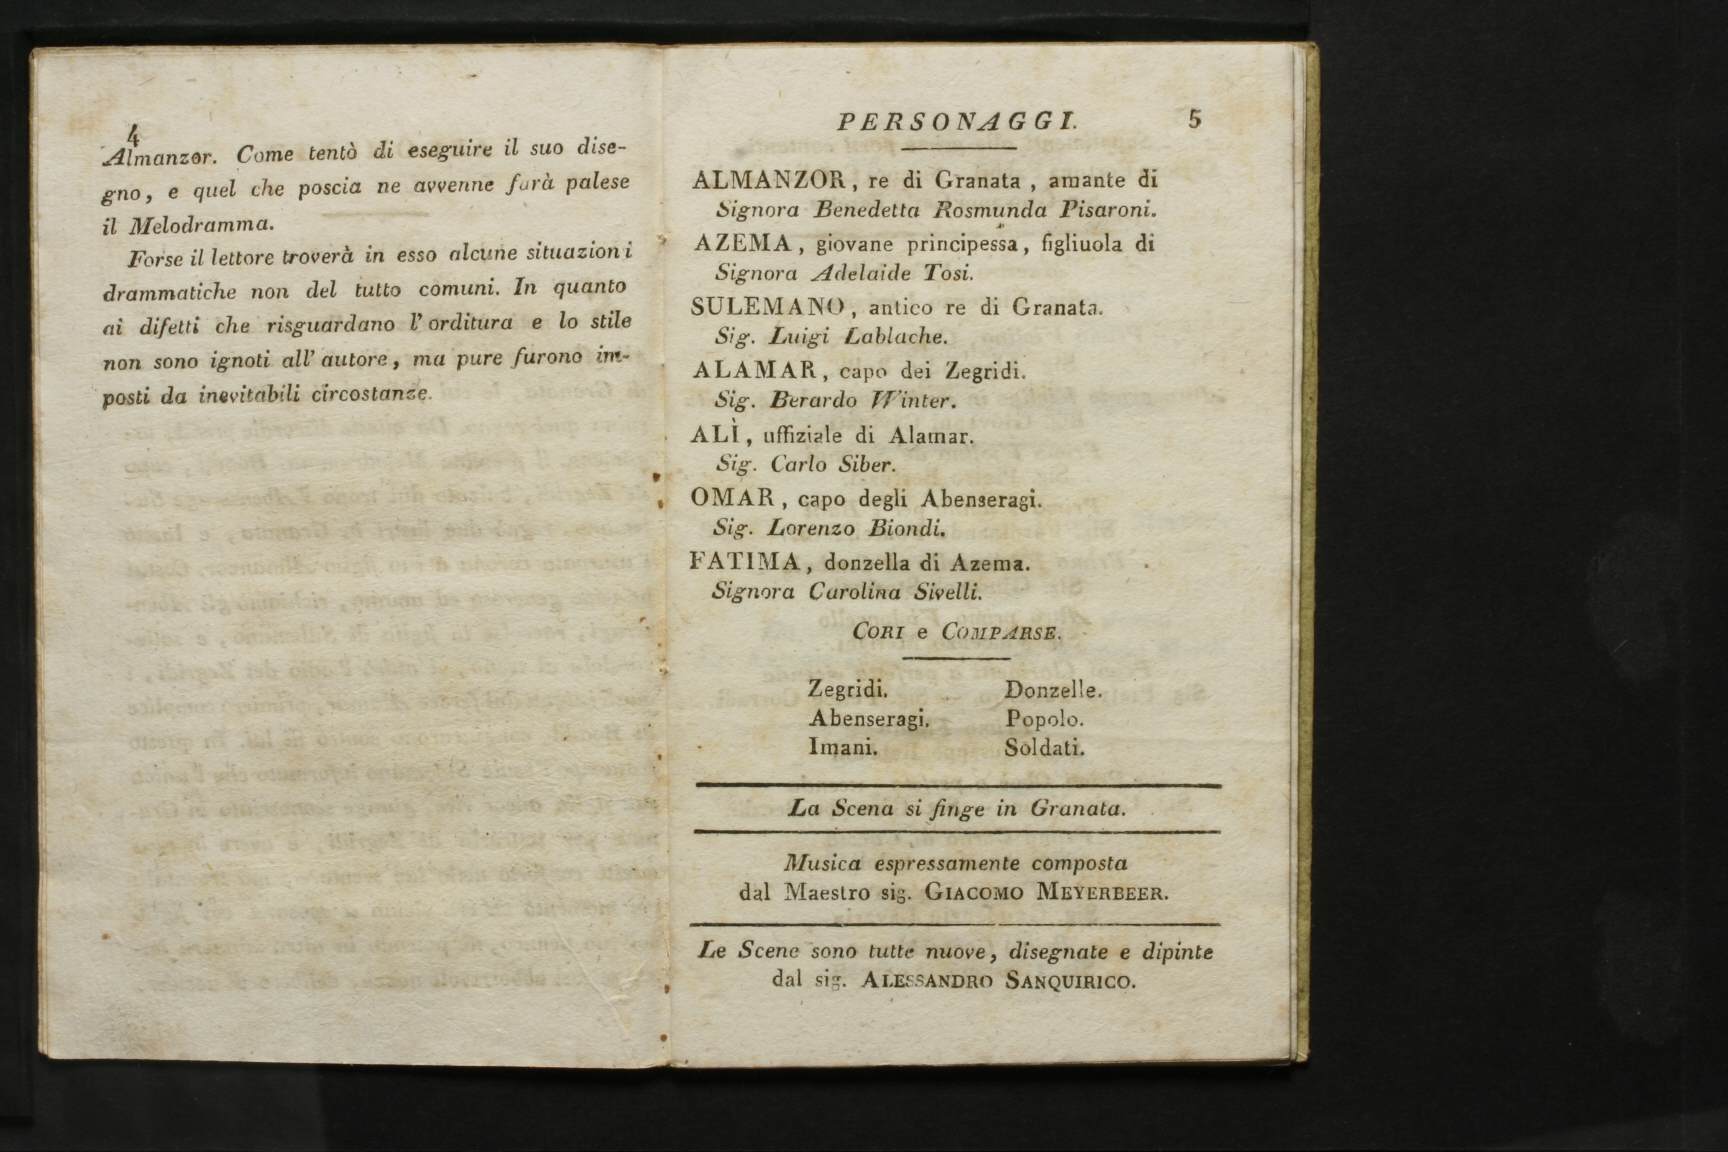 4
Almanzor. Come tentò di eseguire il suo dise-
gno, e quel che poscia ne avvenne farà palese
il Melodramma.
Forse il lettore troverà in esso alcune situazioni
drammatiche non del tutto comuni. In quanto
ai difetti che risguardano l' orditura e lo stile
non sono ignoti all' autore, ma pure furono im-
posti da inevitabili circostanze.
PERSONAGGI. 5
ALMANZOR, re di Granata, amante di
Signora Benedetta Rosmunda Pisaroni.
AZEMA, giovane principessa, figliuola di
Signora Adelaide Tosi.
SULEMANO, antico re di Granata.
Sig. Luigi Lablache.
ALAMAR, capo dei Zegridi.
Sig. Berardo Winter.
ALÌ, uffiziale di Alamar.
Sig. Carlo Siber.
OMAR, capo degli Abenseragi.
Sig. Lorenzo Biondi.
FATIMA, donzella di Azema.
Signora Carolina Sivelli.
CORI e COMPARSE.
Zegridi. Donzelle.
Abenseragi. Popolo.
Imani. Soldati.
La Scena si finge in Granata.
Musica espressamente composta
dal Maestro sig. GIACOMO MEYERBEER.
Le Scene sono tutte nuove, disegnate e dipinte
dal sig. ALESSANDRO SANQUIRICO.